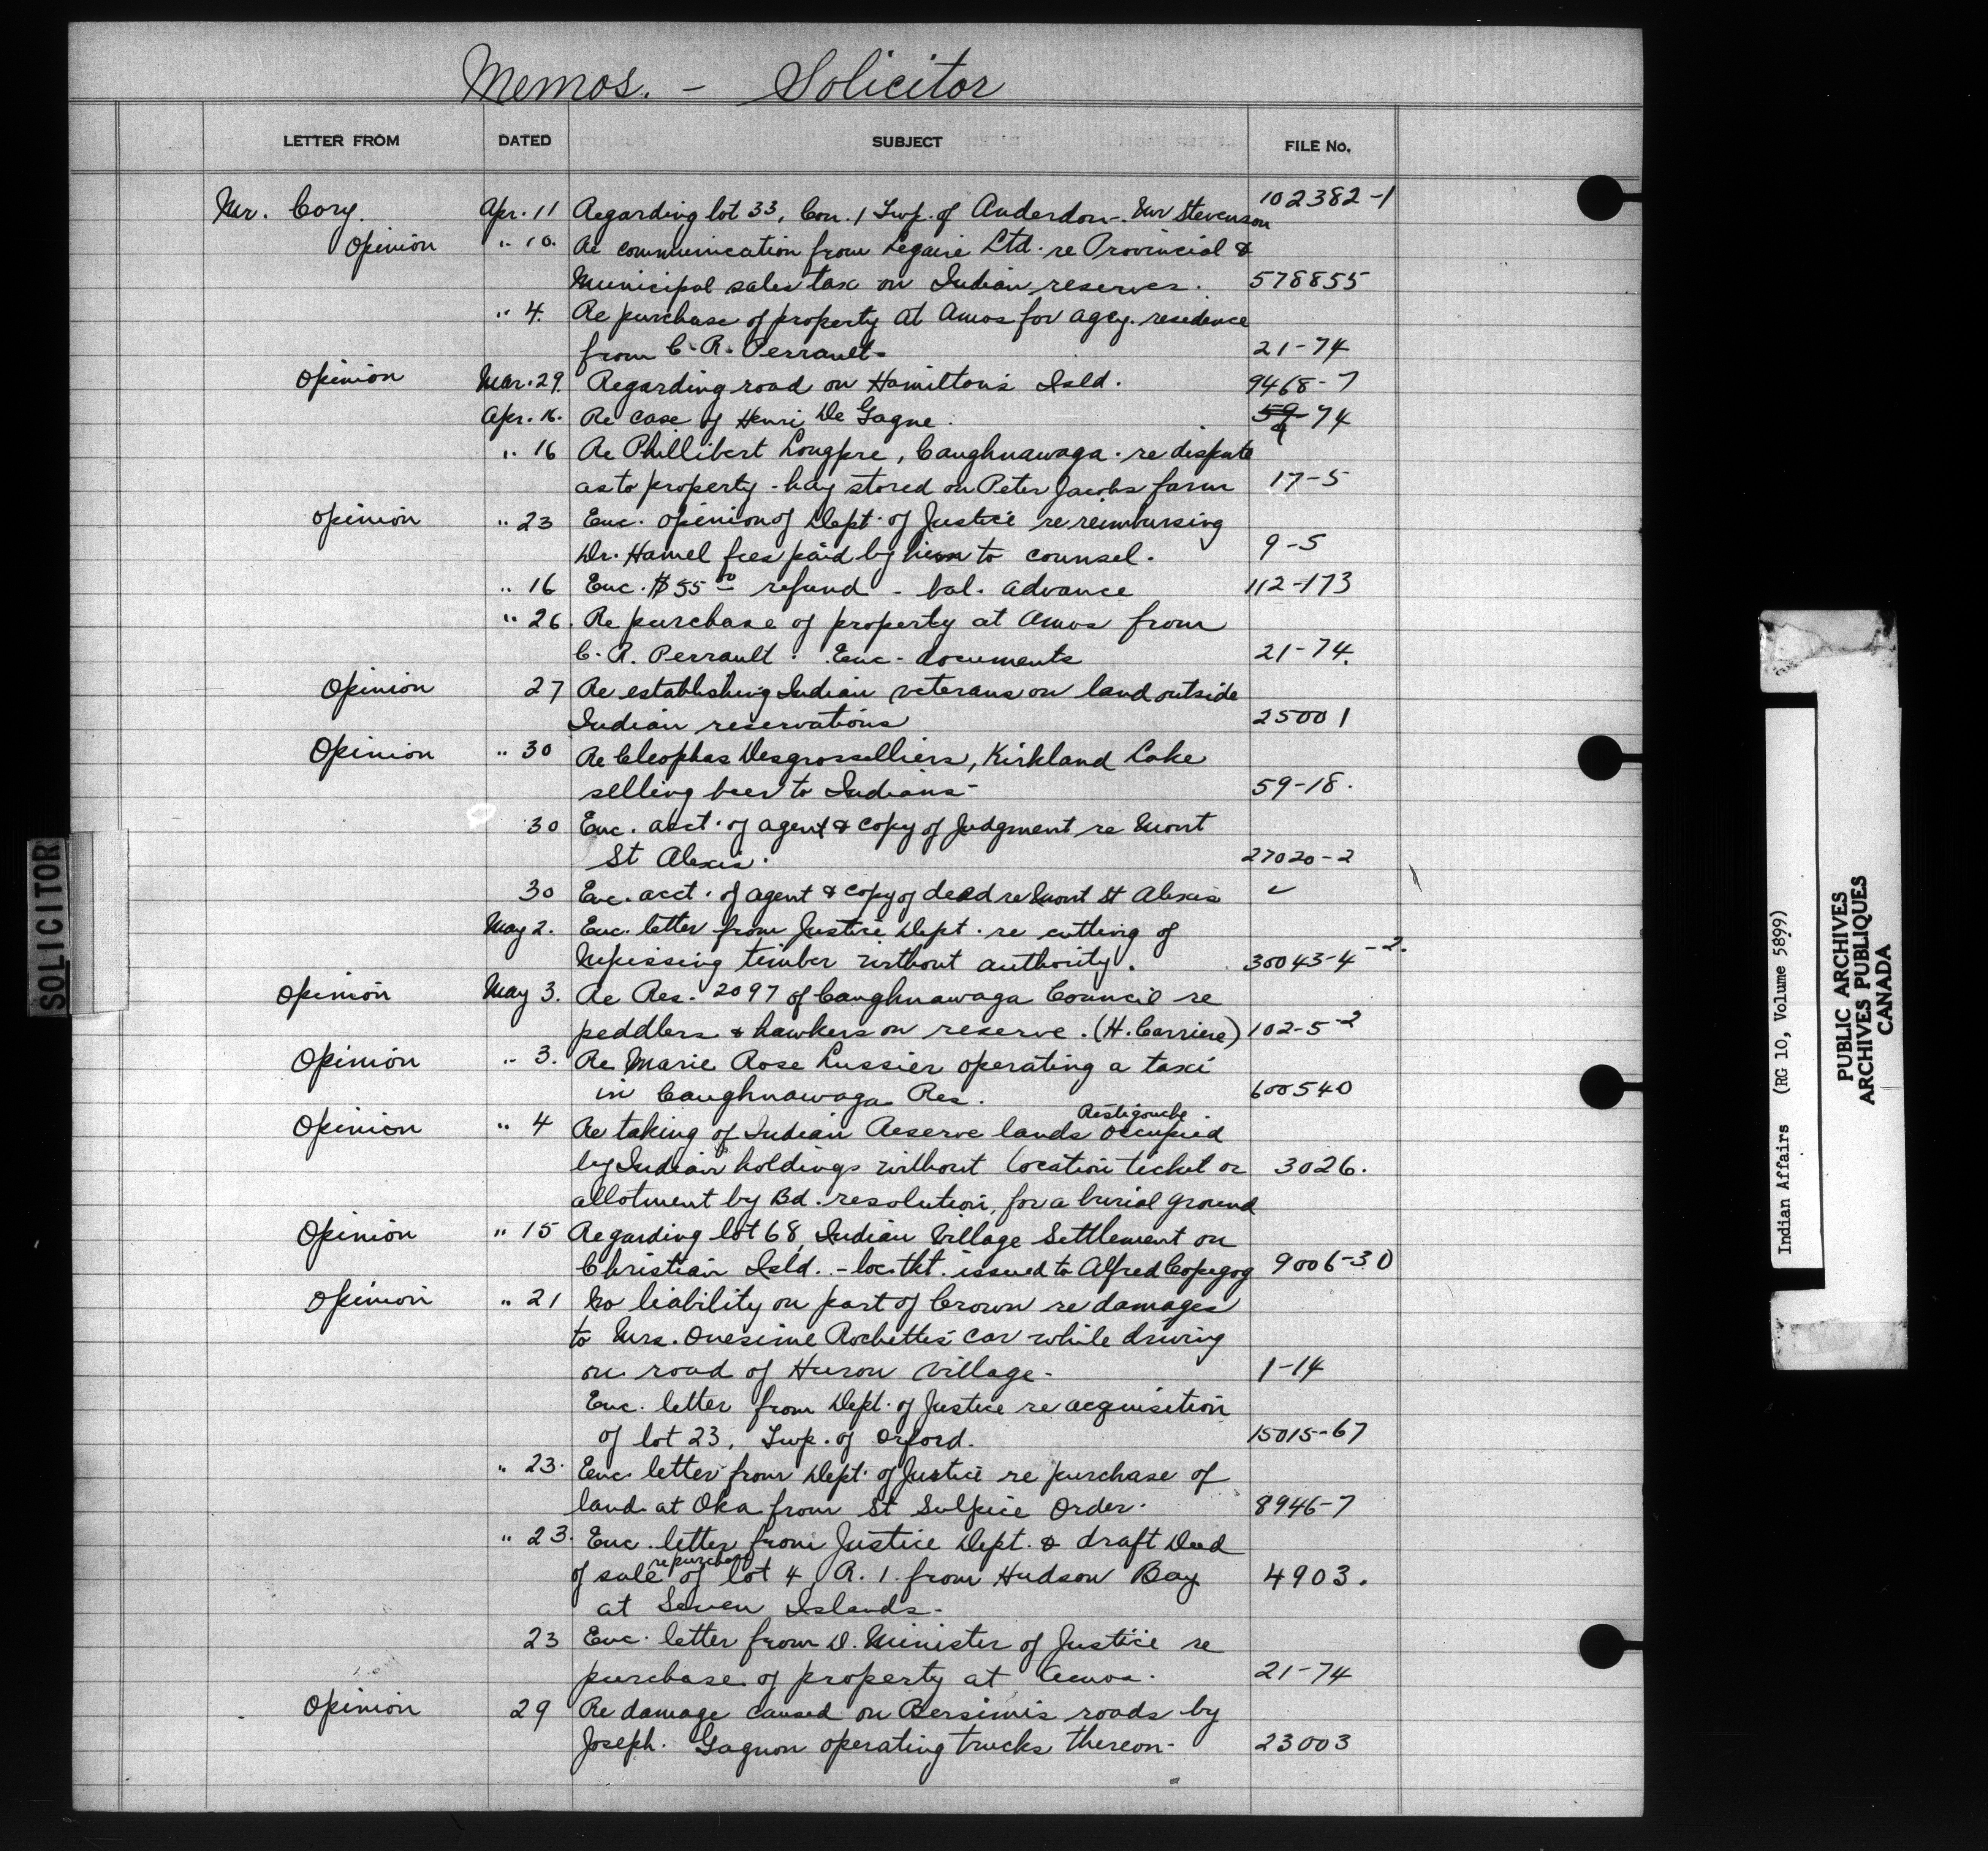 Memos. - Solicitor
LETTER FROM DATED SUBJECT FILE No.
Mr. Cory. Apr. 11 Regarding lot 33, Con. 1 Twp. of Anderdon - Mr Stevenson 102382-1
Opinion " 10. Re communication from Legaire Ltd. re Provincial &
Municipal sales tax on Indian reserves. 578855
" 4. Re purchase of property at Amos for agcy. residence
from C. R. Perrault - 21-74
Opinion Mar. 29. Regarding road on Hamilton's Isld. 9468-7
Apr. 16. Re case of Henri De Gagne. 59-74
" 16 Re Phillibert Longpre, Caughnawaga - re dispute
as to property - hay stored on Peter Jacobs farm 17-5
Opinion " 23 Enc. opinion of Dept. of Justice re reimbursing
Dr. Hamel fees paid by him to counsel. 9-5
" 16 Enc. $55.00 refund - bal. advance 112-173
" 26. Re purchase of property at Amos from
C. R. Perrault. Enc - documents 21-74.
Opinion 27 Re establishing Indian veterans on land outside
Indian reservations 25001
Opinion " 30 Re Cleophas Desgrosselliers, Kirkland Lake
selling beer to Indians - 59-18.
30 Enc. acct. of agent & copy of Judgment re Mont
St Alexis. 27020-2
30 Enc. acct. of agent & copy of deed re Mont St Alexis ✓
May 2. Enc. letter from Justice Dept. re cutting of
Nipissing timber without authority. 30043-4-2.
Opinion May 3. Re Res. 2097 of Caughnawaga Council re
peddlers & hawkers on reserve. (H. Carriere) 102-5-2
Opinion " 3. Re Marie Rose Lussier operating a taxi
in Caughnawaga Res. 600540
Restigouche.
Opinion " 4 Re taking of Indian Reserve lands occupied
by Indian holdings without location ticket or 3026.
allotment by Bd. resolution, for a burial ground
Opinion " 15 Regarding lot 68, Indian Village Settlement on
Christian Isld. - loc. tkt. issued to Alfred Copegog 9006-30
Opinion " 21 No liability on part of Crown re damages
to Mrs. Onesime Rochette's car while driving
on road of Huron Village - 1-14
Enc. letter from Dept. of Justice re acquisition
of lot 23, Twp. of Orford. 15015-67
" 23. Enc. letter from Dept. of Justice re purchase of
land at Oka from St Sulpice Order. 8946-7
" 23. Enc. letter from Justice Dept. & draft Deed
re purchase
of sale of lot 4, R. 1. from Hudson Bay 4903.
at Seven Islands -
23 Enc. letter from D. Minister of Justice re
purchase of property at Amos. 21-74
Opinion 29 Re damage caused on Bersimis roads by
Joseph. Gagnon operating trucks thereon - 23003
SOLICITOR
Indian Affairs (RG 10, Volume 5899)
PUBLIC ARCHIVES
ARCHIVES PUBLIQUES
CANADA